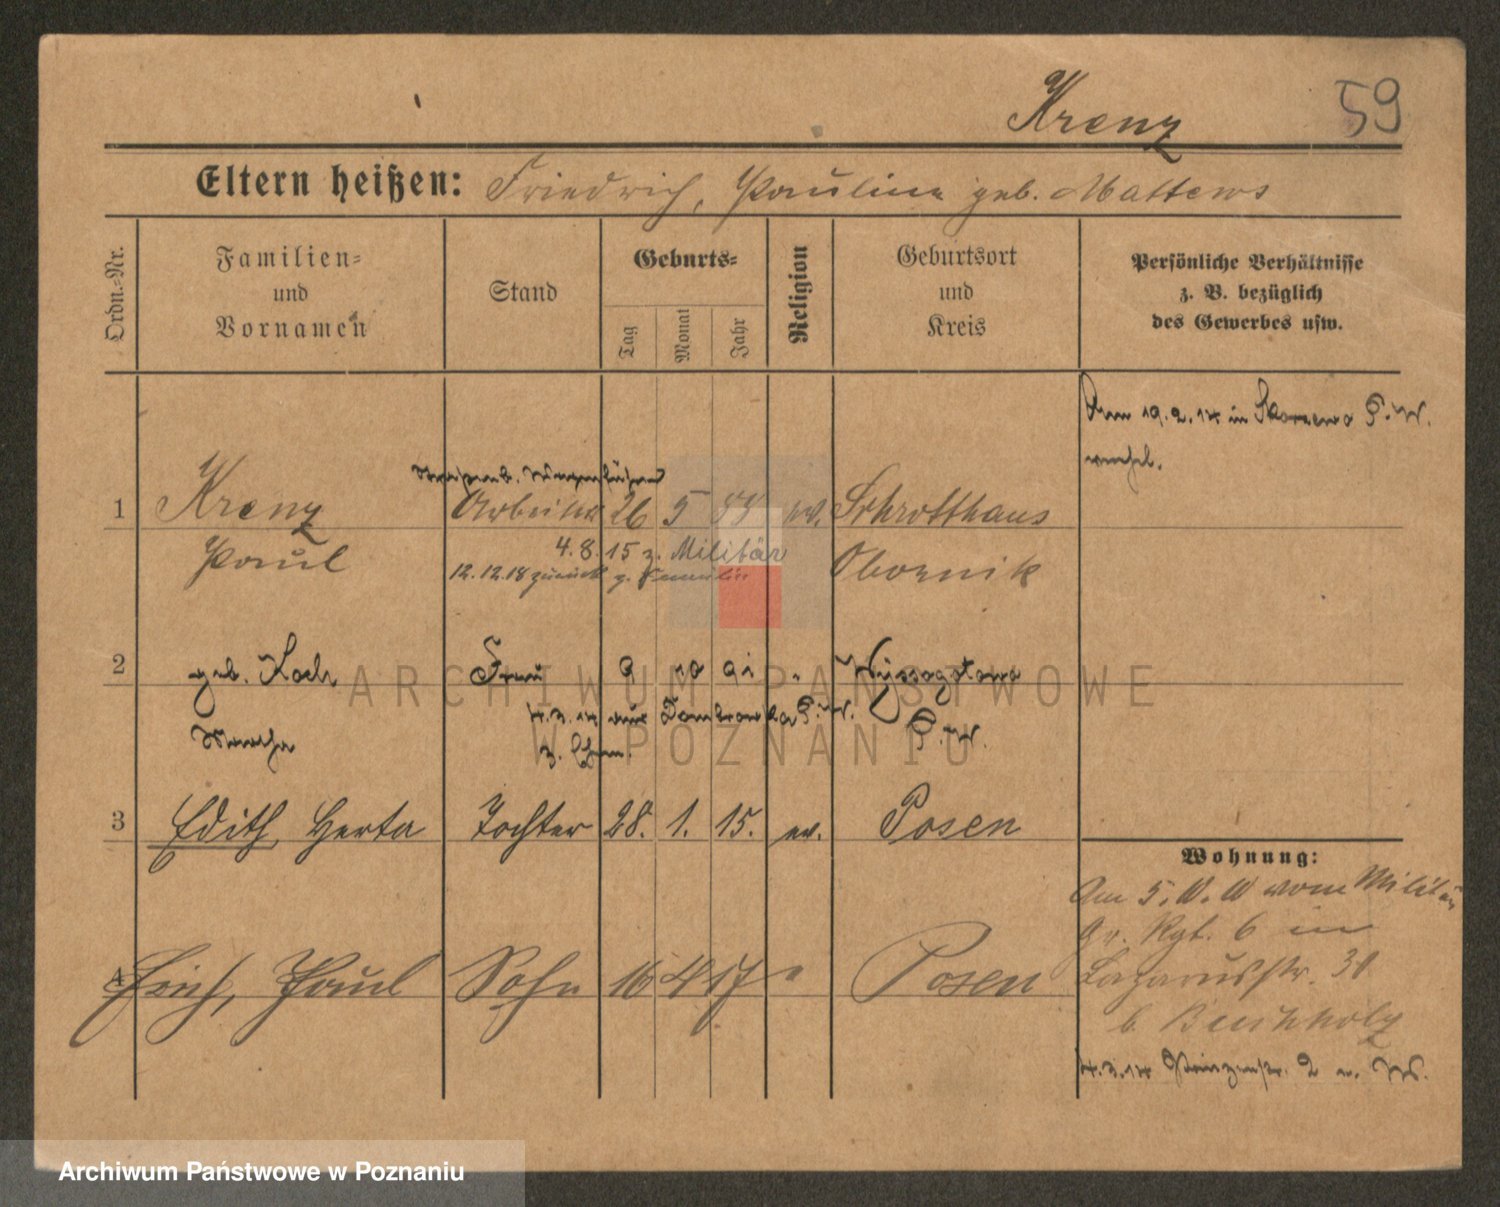 Krenz 59
Eltern heißen: Friedrich, Pauline geb. Mattews
Ordn.=Nr.
Familien=
und
Vornamen
Stand
Geburts=
Tag
Monat
Jahr
Religion
Geburtsort
und
Kreis
Persönliche Verhältnisse
z. B. bezüglich
des Gewerbes usw.
Am 19.2.14 in Skorzewo P.W.
1 Krenz Arbeiter 26 5 88 ev. Schrotthaus
Paul 4.8.15 z. Militär Obornik
12.12.18 zurück z. Familie
2 geb. Koch Frau 9 10 91 " Wysogotowo
4.3.14 aus Dombrowka P.W. P.W.
Martha z. Ehem.
3 Edith, Herta Tochter 28. 1. 15. ev. Posen
Wohnung:
Am 5. vom Militär
Gr. Rgt. 6 in
4 Erich, Paul Sohn 16 4 17 " Posen
Lazarusstr. 30
b. Buchholz
4.3.14 Prinzenstr. 2 n. W.
ARCHIWUM PAŃSTWOWE
W POZNANIU
Archiwum Państwowe w Poznaniu